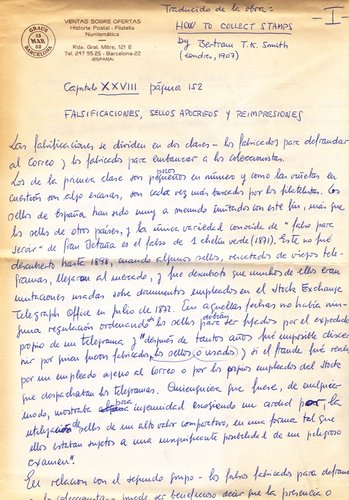 GRAUS
18
MAR. 52
BARCELONA
VENTAS SOBRE OFERTAS
Historia Postal - Filatelia
Numismática
Rda. Gral. Mitre, 121 E
Tel. 247 95 25 - Barcelona-22
(ESPAÑA)
Traducido de la obra:
- I -
HOW TO COLLECT STAMPS
by Bertram T.K. Smith
(Londres, 1907)
Capitulo XXVIII página 152
FALSIFICACIONES, SELLOS APOCRIFOS Y REIMPRESIONES
Las falsificaciones se dividen en dos clases - los fabricados para defraudar
al Correo y los fabricados para embaucar a los coleccionistas.
Los de la primera clase son pocos en número y como las viñetas en
cuestión son algo escasas, son cada vez más buscados por los filatelistas. Los
sellos de España han sido muy a menudo imitados con este fin, más que
los sellos de otros países, y la única variedad conocida de "falso para
servir" de Gran Bretaña es el falso de 1 chelín verde (1871). Este no fué
descubierto hasta 1898, cuando algunos sellos, rescatados de viejos tele-
gramas, llegaron al mercado, y fue descubierto que muchos de ellos eran
imitaciones usadas sobre documentos empleados en el Stock Exchange
Telegraph Office en julio de 1872. En aquellas fechas no había nin-
guna regulación ordenando los sellos debían ser fijados por el expedidor
propio de un telegrama y "después de tantos años fué imposible discer-
nir por quien fueron fabricados los sellos (o usados) y si el fraude fué realizado
por un empleado ajeno al Correo o por los propios empleados del Stock
que despachaban los telegramas. Quienquiera que fuere, de cualquier
modo, mostraba poca ingenuidad escogiendo un ardid
utilizando sellos de un alto valor comparativo, en una forma tal que
ellos estaban sujetos a una insignificante posibilidad de un peligroso
examen".
En relación con el segundo grupo - los falsos fabricados para defraudar
a los coleccionistas - puede ser beneficioso decir que la presencia o